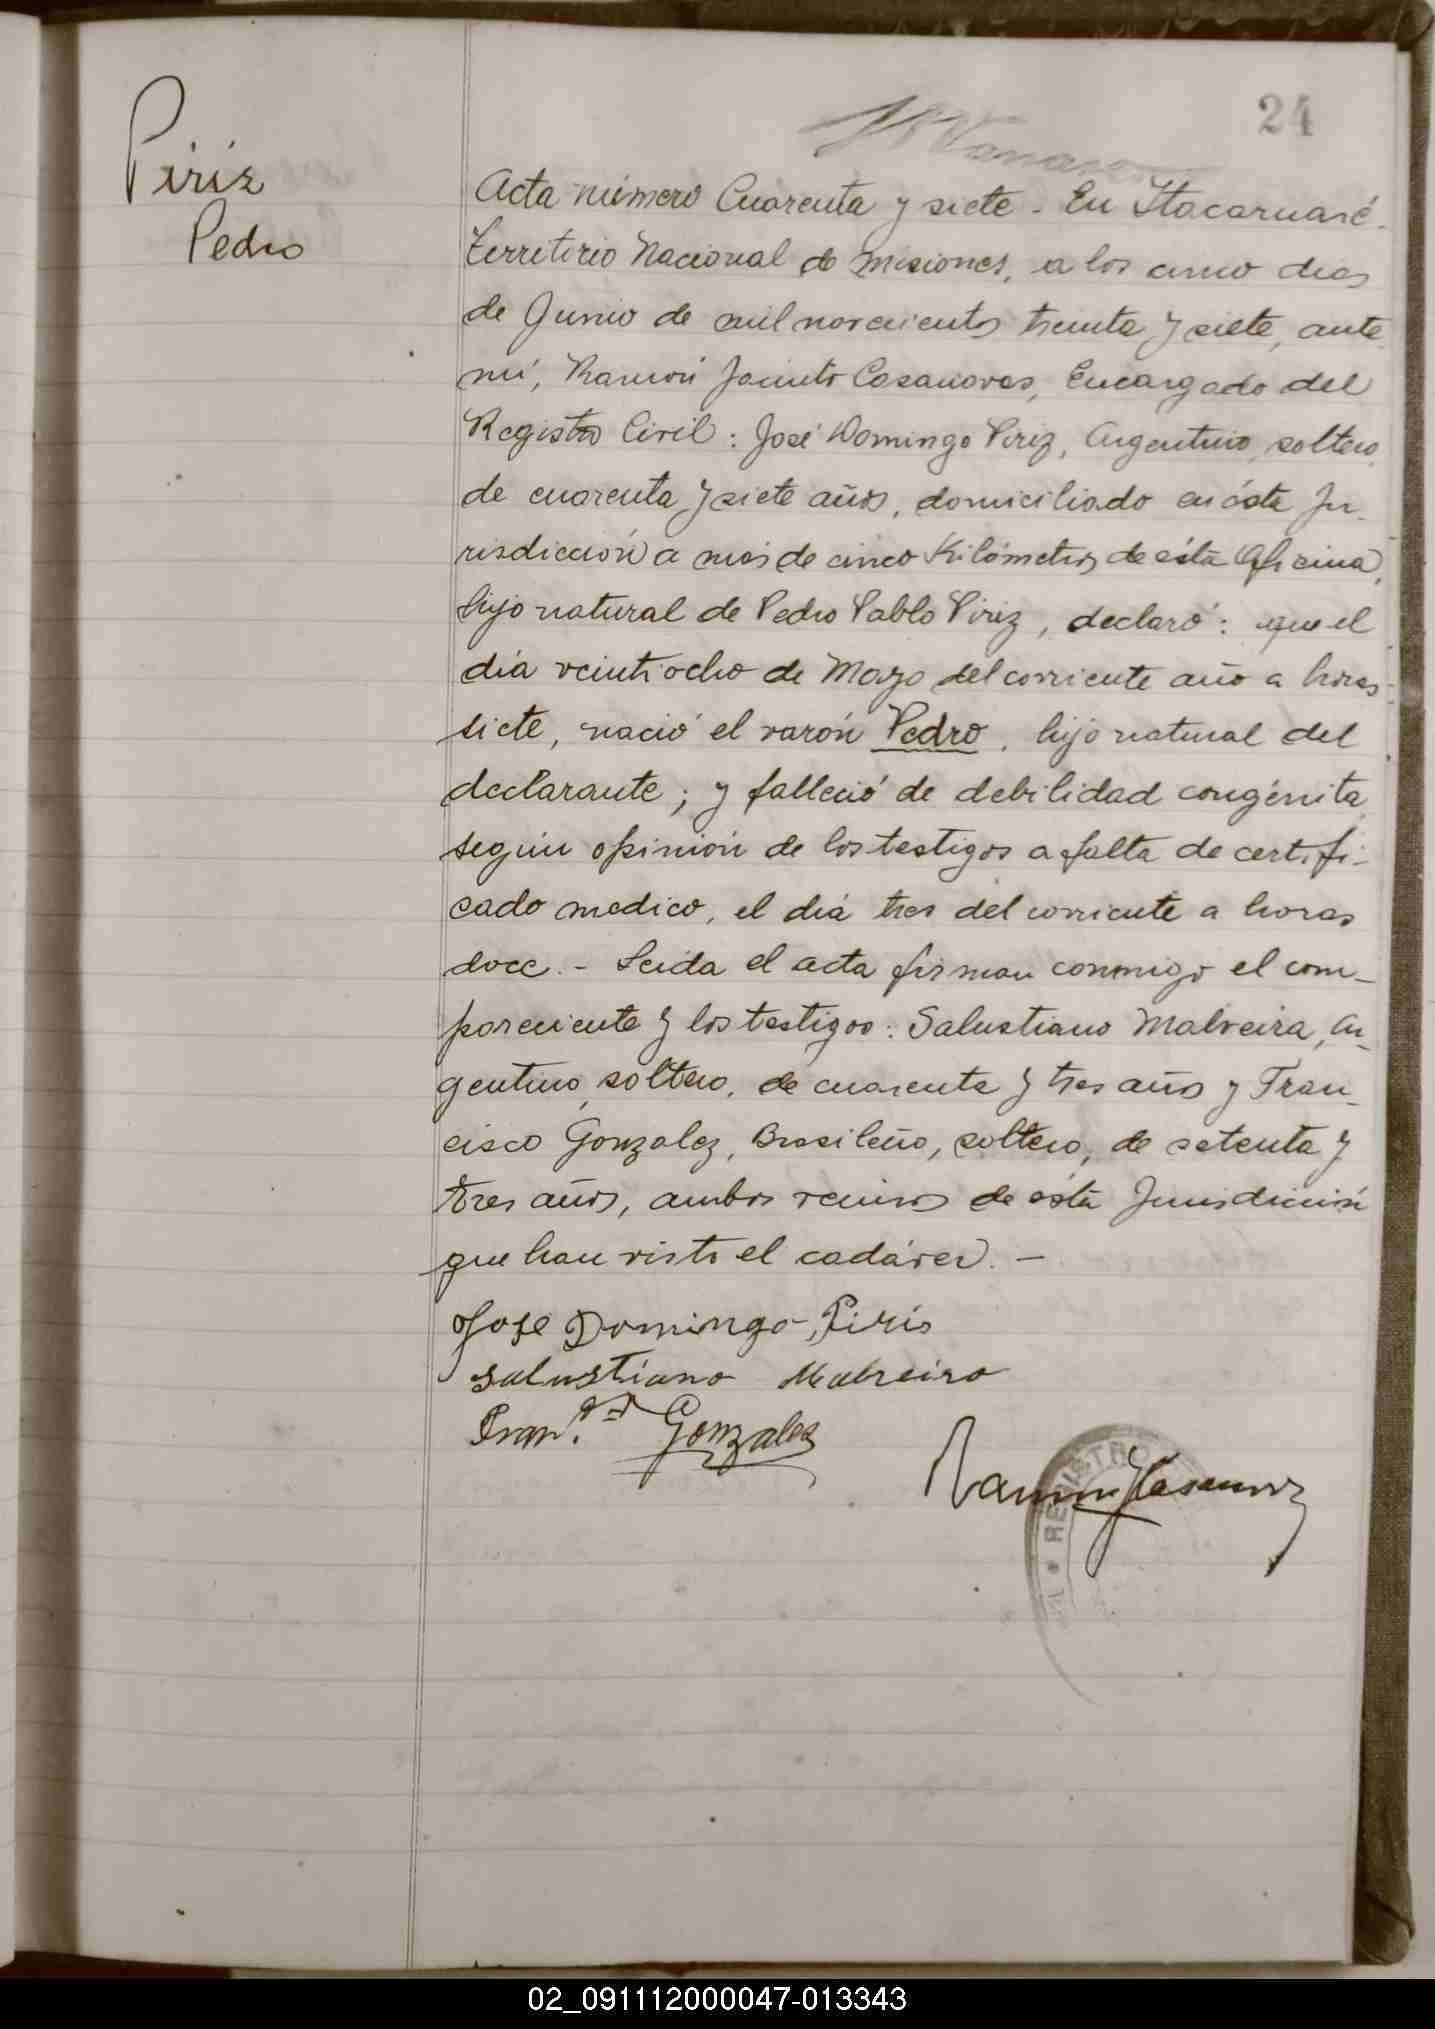 24
Piriz
Pedro
Acta número Cuarenta y siete - En Itacaruaré -
Territorio Nacional de Misiones, a los cinco dias
de Junio de mil novecientos treinta y siete, ante
mí, Ramón Jacinto Casanovas, Encargado del
Registro Civil: José Domingo Piriz, Argentino, soltero,
de cuarenta y siete años, domiciliado en ésta Ju-
risdicción a mas de cinco Kilómetros de ésta Oficina,
hijo natural de Pedro Pablo Piriz, declaró: que el
día veintiocho de Mayo del corriente año a horas
siete, nació el varón Pedro, hijo natural del
declarante; y falleció de debilidad congénita
según opinión de los testigos a falta de certifi-
cado medico, el día tres del corriente a horas
doce. - Leida el acta firman conmigo el com-
pareciente y los testigos: Salustiano Malveira, Ar-
gentino, soltero, de cuarenta y tres años y Fran-
cisco Gonzalez, Brasileño, soltero, de setenta y
tres años, ambos vecinos de ésta Jurisdicción
que han visto el cadáver. -
Jose Domingo Piris
Salustiano Malveira
Gonzalez
REGISTRO
02_091112000047-013343